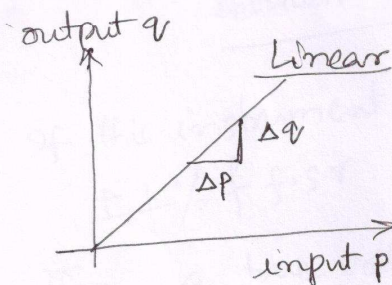 output q
Linear
Δq
Δp
input p